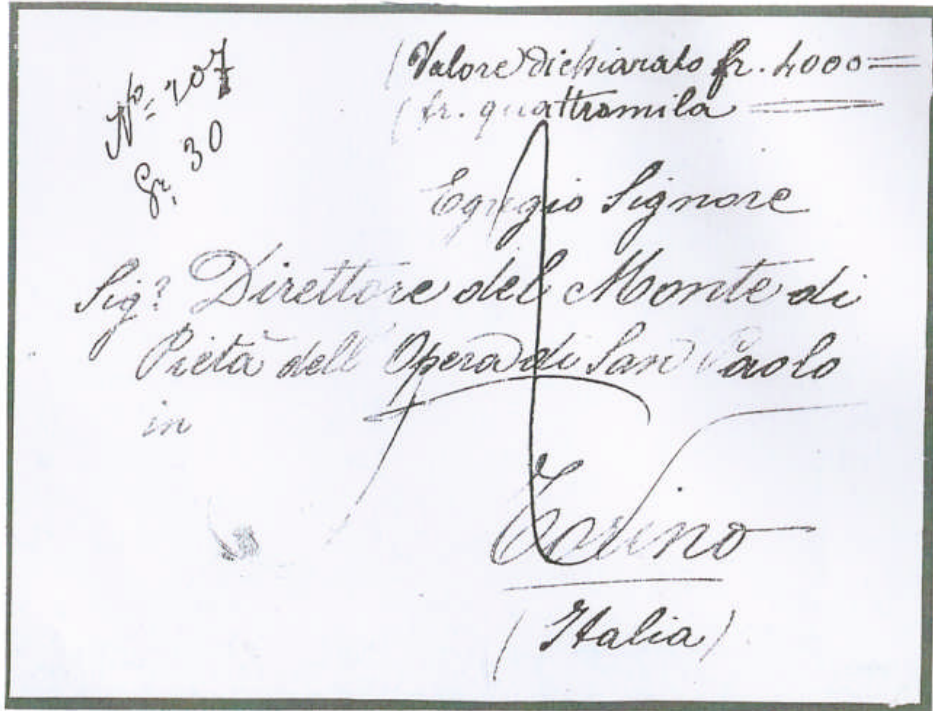 Nº= 207
Gr. 30
(Valore dichiarato fr. 4000=
(fr. quattromila
Egregio Signore
Sig.r Direttore del Monte di
Pietà dell' Opera di San Paolo
in
Torino
(Italia)